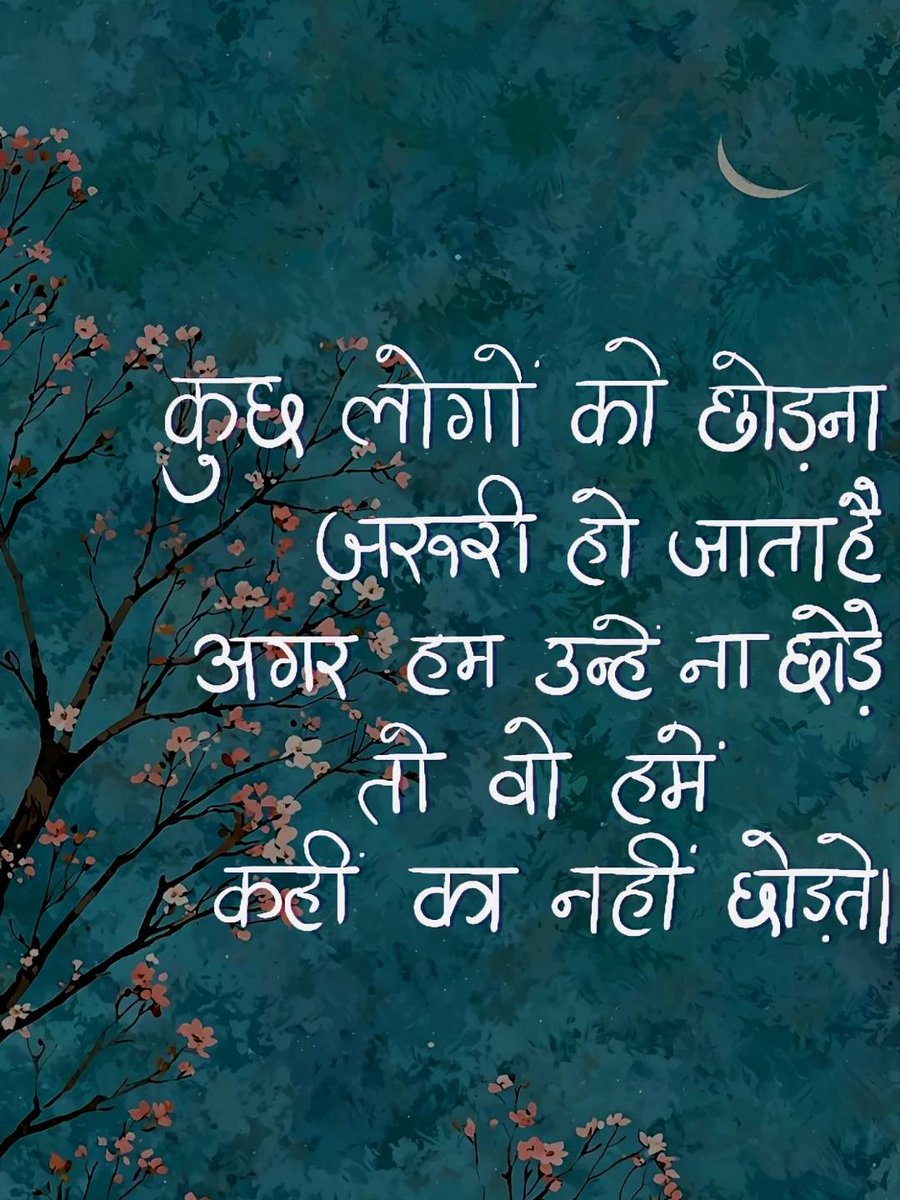 कुछ लोगों को छोड़ना
जरूरी हो जाता है
अगर हम उन्हें ना छोड़े
तो वो हमें
कहीं का नहीं छोड़ते।